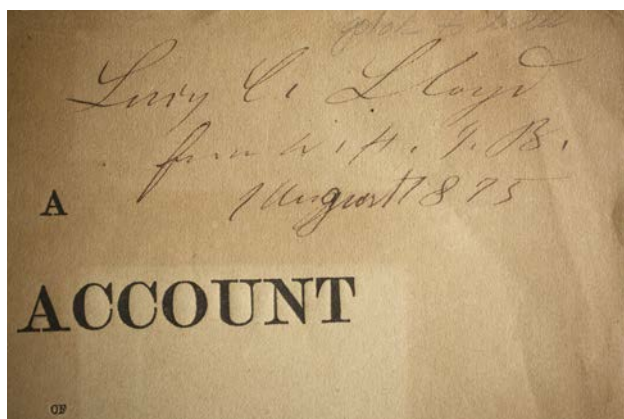 Lucy C. Lloyd
from W. H. I. B.
August 1875
A
ACCOUNT
OF